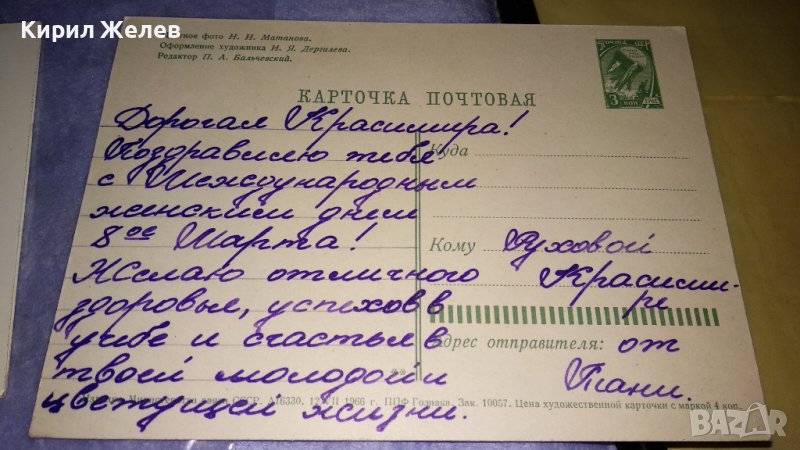 Кирил Желев
тное фото Н. И. Матанова.
Оформление художника И. Я. Дергилева.
Редактор П. А. Бальчевский.
ПОЧТА СССР
3 КОП
КАРТОЧКА ПОЧТОВАЯ
Дорогая Красимира!
Поздравляю тебя
с Международным
женским днем
8ое Марта!
Желаю отличного
здоровья, успехов в
учебе и счастья в
твоей молодой и
цветущей жизни.
Куда
Кому Руховой
Красими-
ре
Адрес отправителя: от
Тани.
Министерство связи СССР. А16330. 12/VII 1966 г. ППФ Гознака. Зак. 10057. Цена художественной карточки с маркой 4 коп.
BAZAR